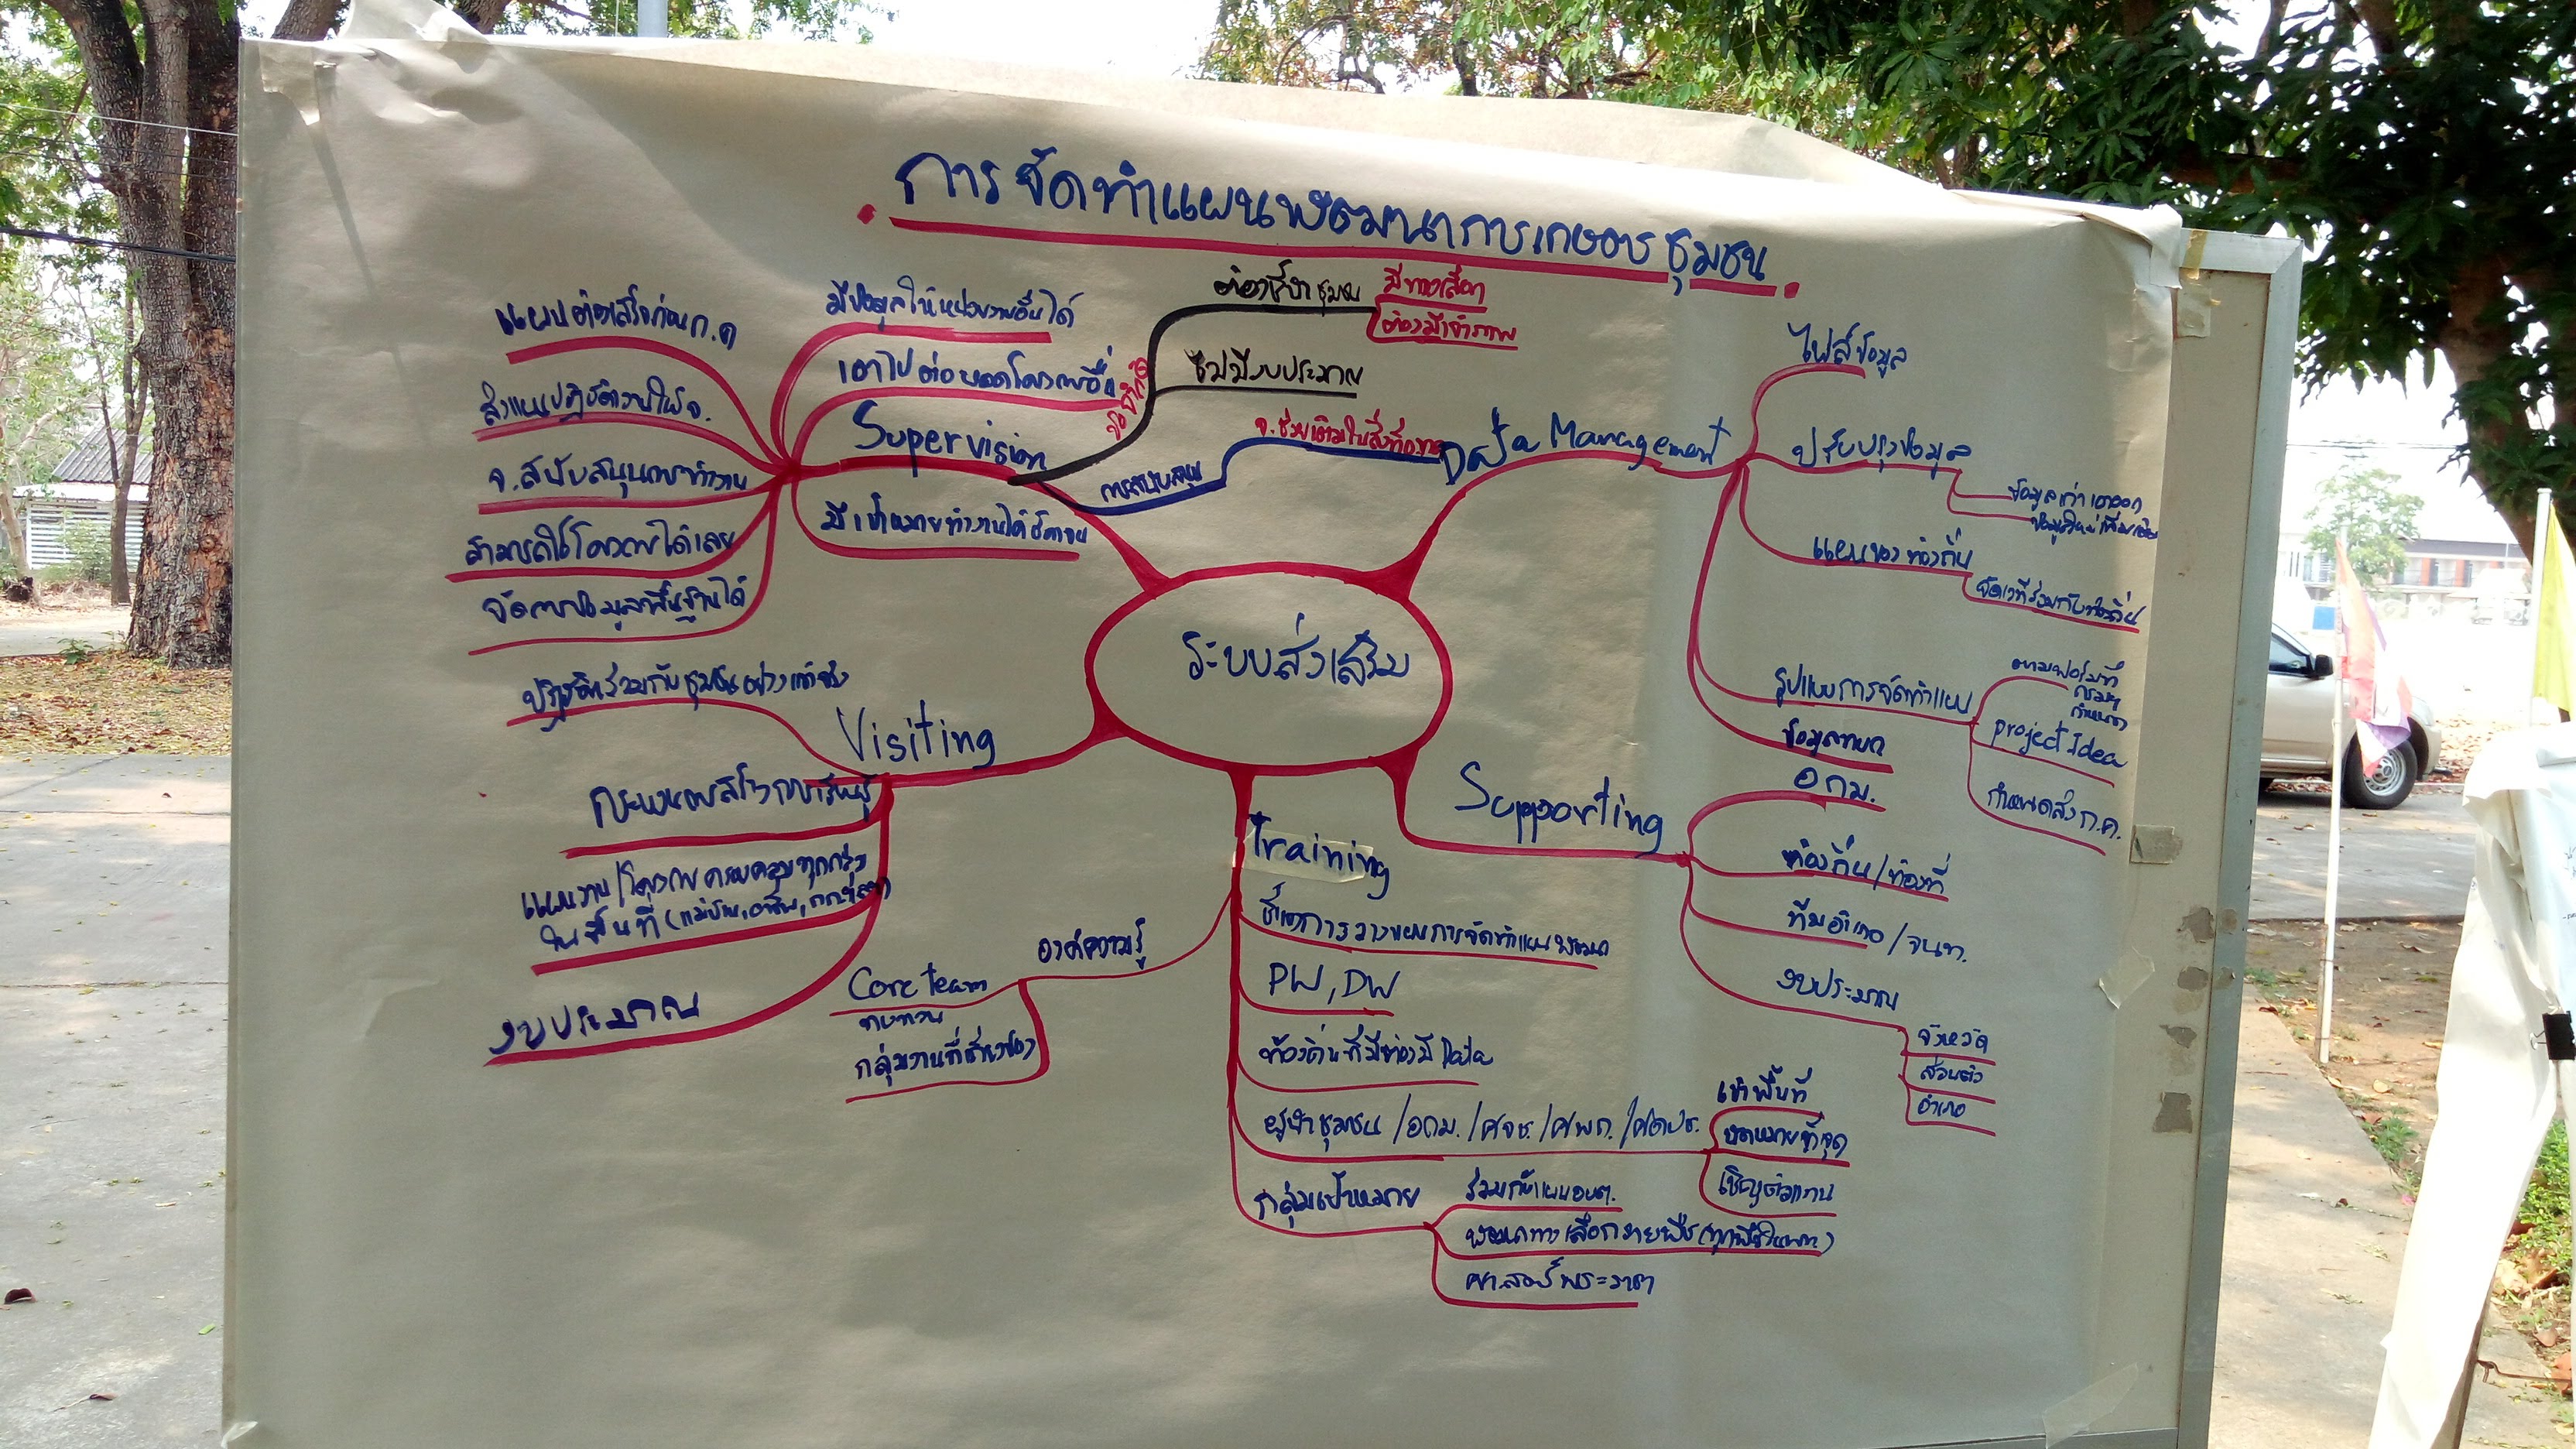 การจัดทำแผนพัฒนาการเกษตรชุมชน
ระบบส่งเสริม
Supervision
แผนต้องเสร็จก่อน ก.ค
ส่งแผนปฏิบัติงานให้ จ.
จ.สนับสนุนการทำงาน
สามารถใช้โครงการได้เลย
จัดการข้อมูลพื้นฐานได้
มีข้อมูลให้หน่วยงานอื่นได้
เอาไปต่อยอดโครงการอื่น
มีเป้าหมายทำงานได้ชัดเจน
ข้อจำกัด
ต้องชี้นำชุมชน
มีทางเลือก
ต้องมีเจ้าภาพ
ไม่มีงบประมาณ
การสนับสนุน
จ.ช่วยเติมในสิ่งที่ขาด
Data Management
ไฟล์ข้อมูล
ปรับปรุงข้อมูล
ข้อมูลเก่าเอาออก
ข้อมูลใหม่เพิ่มเติม
แผนของท้องถิ่น
จัดเวทีร่วมกับท้องถิ่น
รูปแบบการจัดทำแผน
ตามฟอร์มที่
กรมฯ
กำหนด
project Idea
กำหนดส่ง ก.ค.
Visiting
ปฏิบัติร่วมกับชุมชนอย่างแท้จริง
กระบวนการสร้างการเรียนรู้
แผนงาน/โครงการ ครอบคลุมทุกกลุ่ม
ในพื้นที่
งบประมาณ
Supporting
อกม.
ท้องถิ่น/ท้องที่
ทีมอำเภอ/จนท.
งบประมาณ
จังหวัด
ส่วนตัว
อำเภอ
Training
องค์ความรู้
Core team
ทบทวน
กลุ่มงานที่เกี่ยวข้อง
ชี้แจงการวางแผนการจัดทำแผนพัฒนา
PW, DW
ท้องถิ่นที่มีต้องมี Data
ผู้นำชุมชน/อกม./ศจช./ศพก./ศดปช.
เข้าพื้นที่
นัดหมายที่จุด
เชิญตัวแทน
กลุ่มเป้าหมาย
ร่วมกับแผนอบต.
พัฒนาทางเลือกรายพืช
ศาสตร์พระราชา